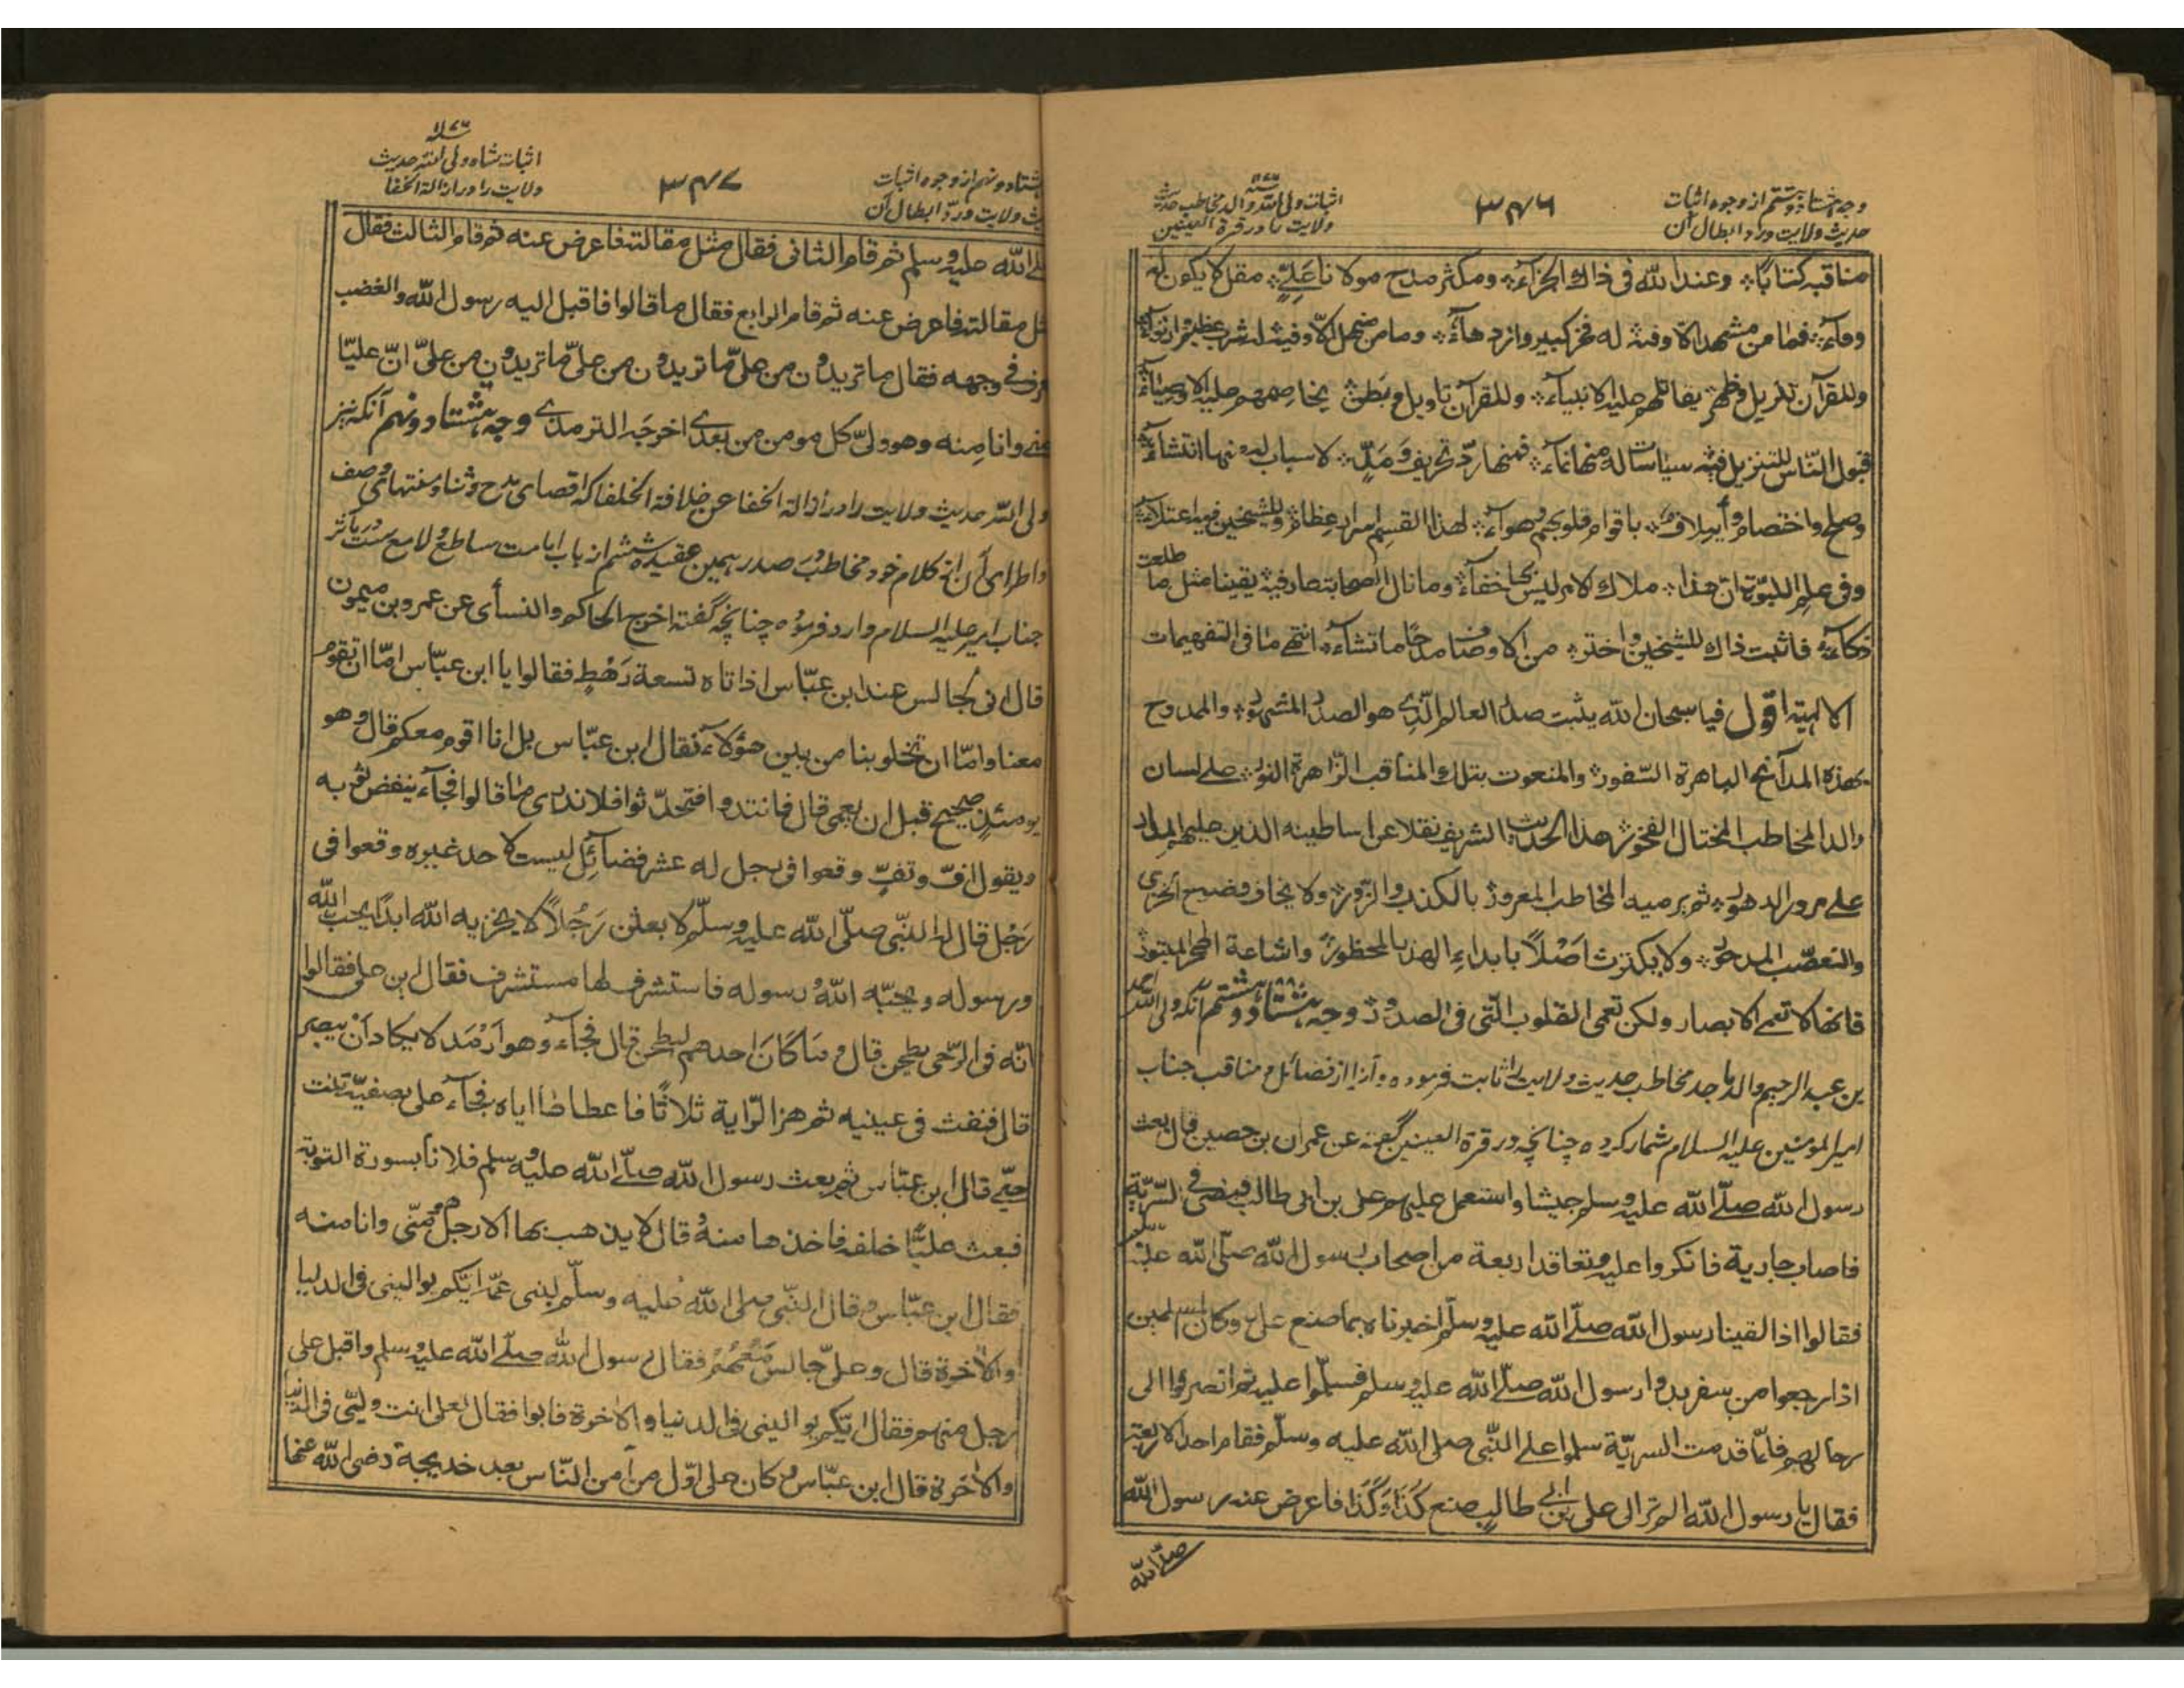 وجه هشتاد و هشتم از وجوه اثبات
حدیث ولایت و رد ابطال آن
۳۴۶
۱۱۷۶
اثبات ولی الله والد مخاطب حدیث
ولایت را در قرة العینین
مناقبه کتابًا وعند الله فی ذاك الجزآء ومکثر مدح مولانا علیّ مقل لا یکون له
وفآء فما من مشهد الّا وفیه له فخر کبیر وازدهآء وما من منهل الّا وفیه لشرب عظیم وارتوآء
وللقرآن تنزیل وظهر یقاتلهم علیه الانبیآء وللقرآن تاویل وبطن یخاصمهم علیه الاوصیآء
قبول النّاس للتنزیل فیه سیاسات له منها نمآء فمنها ردّ تحریف و لاسباب له منها انتشآء
وصلح واختصام وأیتلاف باقوام قلوبهم هوآء لهذا القسم اسرار عظام وللشیخین فیه اعتلآء
وفی علم النبوّة ان هذا ملاك الامر لیس بها خفآء وما نال الصحابة صادفیه یقینا مثل ما طلعت
ذکآء فاثبت ذاك للشیخین واختر من الاوصاف مدحًا ما تشآء انتهی ما فی التفهیمات
الالهیّة اقول فیا سبحان الله یثبت صدر العالم الّذی هو الصدر المشهور والممدوح
بهذه المدآئح الباهرة السّفور والمنعوت بتلك المناقب الزّاهرة النور علی لسان
والد المخاطب المختال الفخور هذا الحدیث الشریف نقلا عن اساطینه الذین علیهم المدار
علی مرور الدهور ثم یرمیه المخاطب المغرور بالکذب والزّور ولا یخاف فضیح الخزی
والتعصّب المدحور ولا یکترث اصلًا بابداءِ الهذر المحظور واشاعة الهجر المبتور
فانها لا تعمی الابصار ولکن تعمی القلوب الّتی فی الصدور وجه هشتاد و هشتم آنکه ولی الله احمد
بن عبد الرحیم والد ماجد مخاطب حدیث ولایت را ثابت فرموده و آنرا از فضائل و مناقب جناب
امیر المؤمنین علیه السلام شمار کرده چنانچه در قرة العینین گفته عن عمران بن حصین قال بعث
رسول الله صلّی الله علیه وسلم جیشا واستعمل علیهم علی بن ابی طالب فمضی فی السّریّة
فاصاب جاریة فانکروا علیه وتعاقد اربعة من اصحاب رسول الله صلّی الله علیه وسلم
فقالوا اذا لقینا رسول الله صلّی الله علیه وسلّم اخبرناه بما صنع علیّ وکان المسلمین
اذا رجعوا من سفر بدوا رسول الله صلّی الله علیه وسلم فسلّموا علیه ثم انصرفوا الی
رحالهم فلمّا قدمت السریّة سلموا علی النّبی صلی الله علیه وسلّم فقام احد الاربعة
فقال یا رسول الله الم تر الی علی بن ابی طالب صنع کَذَا وَکَذَا فاعرض عنه رسول الله
صلّی الله
هشتاد و نهم از وجوه اثبات
حدیث ولایت و ردّ ابطال آن
۳۴۷
۱۱۷۶
اثبات شاه ولی الله حدیث
ولایت را در ازالة الخفا
صلی الله علیه وسلم ثم قام الثانی فقال مثل مقالته فاعرض عنه ثم قام الثالث فقال
مثل مقالته فاعرض عنه ثم قام الرابع فقال ما قالوا فاقبل الیه رسول الله والغضب
یعرف فی وجهه فقال ما تریدون من علیّ ما تریدون من علیّ ما تریدون من علیّ انّ علیّا
منّی وانا مِنه وهو ولیّ کل مومن من بعدی اخرجَه الترمذی وجه هشتاد و نهم آنکه نیز
ولی الله حدیث ولایت را در ازالة الخفا عن خلافة الخلفا که اقصای مدح و ثنا و منتهای وصف
و اطرای آن از کلام خود مخاطب در صدر همین عقیده ششم از باب امامت ساطع و لامع ست در مآثر
جناب امیر علیه السلام وارد فرموده چنانچه گفته اخرج الحاکم والنسأی عن عمرو بن میمون
قال انی لجالس عند ابن عبّاس اذا تاه تسعة رَهْطٍ فقالوا یا ابن عبّاس امّا ان تقوم
معنا وامّا ان تخلو بنا من بین هؤلاء فقال ابن عبّاس بل انا اقوم معکم قال وهو
یومئذٍ صحیح قبل ان یعمی قال فانتدوا فتحدّثوا فلا ندری ما قالوا فجآء ینفض ثوبه
ویقول افّ وتفٍّ وقعوا فی رجل له عشر فضآئِل لیست لاحد غیره وقعوا فی
رَجُل قال له النّبی صلّی الله علیه وسلّم لابعثن رَجُلاً لا یخزیه الله ابدًا یحب الله
ورسوله ویحبّه الله ورسوله فاستشرف لها مستشرف فقال این علی فقالوا
انّه فی الرّحی یطحن قال وما کَانَ احدهم لیطحن قال فجآء وهو اَرْمَد لا یکاد اَنْ یبصر
قال فنفث فی عینیه ثم هز الرّایة ثلاثًا فاعطاها ایاه فجآء علی بصفیّة بنت
حیّی قال ابن عبّاس ثم بعث رسول الله صلّی الله علیه وسلم فلانا بسورة التوبة
فبعث علیًّا خلفه فاخذها منهُ وقال لا یذهب بها الا رجل هو منّی وانا منه
فقال ابن عبّاس وقال النّبی صلی الله علیه وسلّم لبنی عمّه ایّکم یوالینی فی الدنیا
والآخرة قال وعلیّ جالس مَعَهُمْ فقال رسول الله صلّی الله علیه وسلم واقبل علی
رجل منهم فقال ایّکم یوالینی فی الدنیا والاخرة فابوا فقال لعلی انت ولیّی فی الدنیا
والآخرة قال ابن عبّاس وکان علی اوّل من آمن من النّاس بعد خدیجة رضی الله عنها